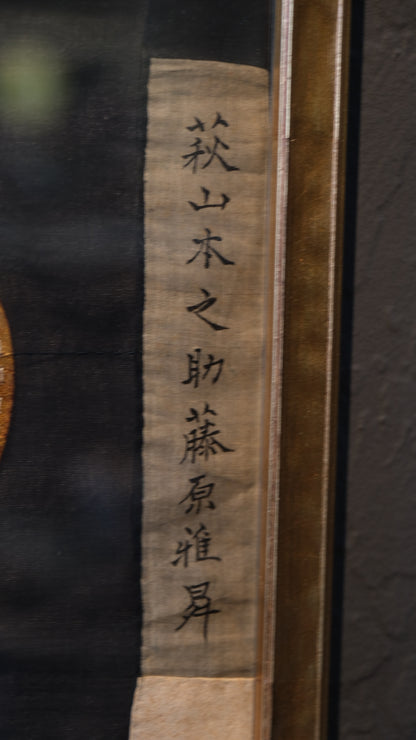 萩山本之助藤原雅昇